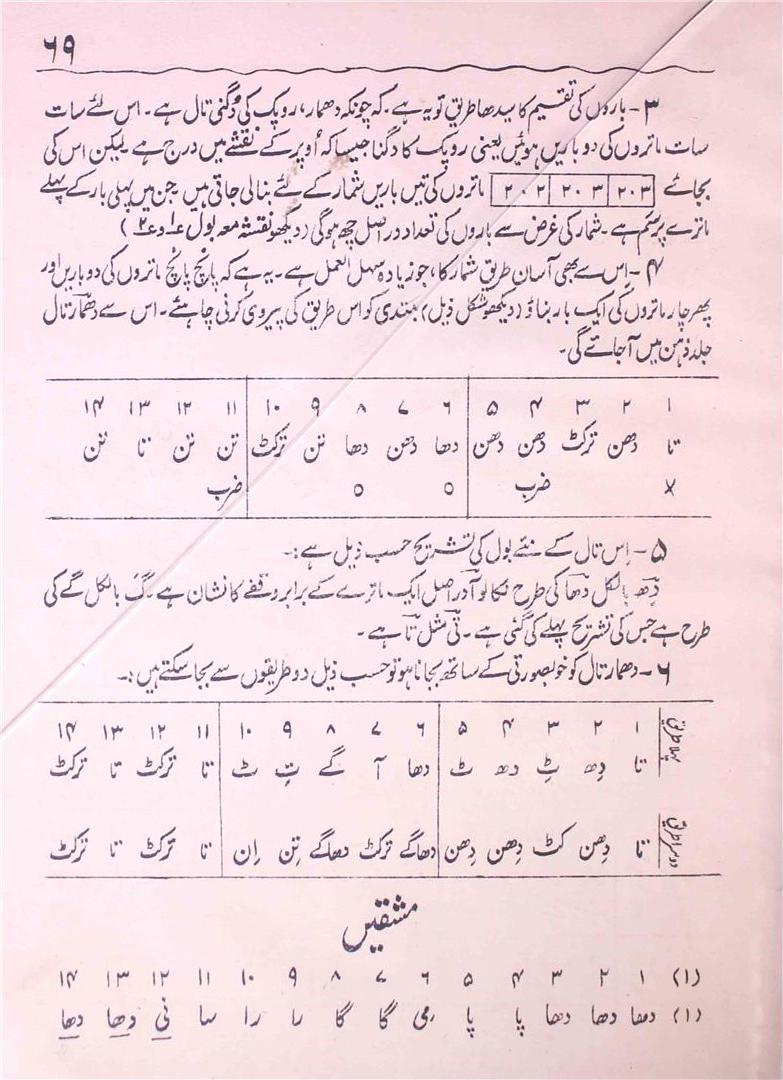 ۶۹
۳- باروں کی تقسیم کا سیدھا طریق تو یہ ہے۔ کہ چونکہ دھمار، روپک کی دُگنی تال ہے۔ اس لئے سات
سات ماتروں کی دو باریں ہوئیں یعنی روپک کا دگنا جیسا کہ اُوپر کے نقشے میں درج ہے۔ لیکن اس کی
بجائے ۲۰۳ ۲۰۳ ۲۰۲ ماتروں کی تیں باریں شمار کے لئے بنالی جاتی ہیں جن میں پہلی بار کے پہلے
ماترے پر سَم ہے۔ شمار کی غرض سے باروں کی تعداد در اصل چھ ہوگی (دیکھو نقشہ معہ بول ۱ و ۲)
۴- اِس سے بھی آسان طریق شمار کا، جو زیادہ سہل العمل ہے۔ یہ ہے کہ پانچ پانچ ماتروں کی دو باریں اور
پھر چار ماتروں کی ایک بار بناؤ (دیکھو شکل ذیل) مبتدی کو اس طریق کی پیروی کرنی چاہئے۔ اس سے دھمار تال
جلد ذہن میں آجائے گی۔
۱ ۲ ۳ ۴ ۵ ۶ ۷ ۸ ۹ ۱۰ ۱۱ ۱۲ ۱۳ ۱۴
تا دھن ترکٹ دھن دھن دھا دھن دھا تن ترکٹ تن تن تا تن
× ضرب ٥ ٥ ضرب
۵- اِس تال کے نئے بول کی تشریح حسب ذیل ہے:۔
دِھ بالکل دھا کی طرح نکالو آ دراصل ایک ماترے کے برابر وقفے کا نشان ہے گ بالکل گے کی
طرح ہے جس کی تشریح پہلے کی گئی ہے۔ تی مثل تا ہے۔
۶- دھمار تال کو خوبصورتی کے ساتھ بجانا ہو تو حسب ذیل دو طریقوں سے بجا سکتے ہیں:۔
پہلا طریق ۱ ۲ ۳ ۴ ۵ ۶ ۷ ۸ ۹ ۱۰ ۱۱ ۱۲ ۱۳ ۱۴
تا دِھ ٹِ دھ ٹ دھا آ گے تِ ٹ تا ترکٹ تا ترکٹ
دوسرا طریق تا دِھن کٹ دِھن دِھن دھاگے ترکٹ دھاگے تِن اِن تا ترکٹ تا ترکٹ
مشقیں
(۱) ۱ ۲ ۳ ۴ ۵ ۶ ۷ ۸ ۹ ۱۰ ۱۱ ۱۲ ۱۳ ۱۴
(۱) دھا دھا دھا پا پا می گا گا را را سا نی دھا دھا